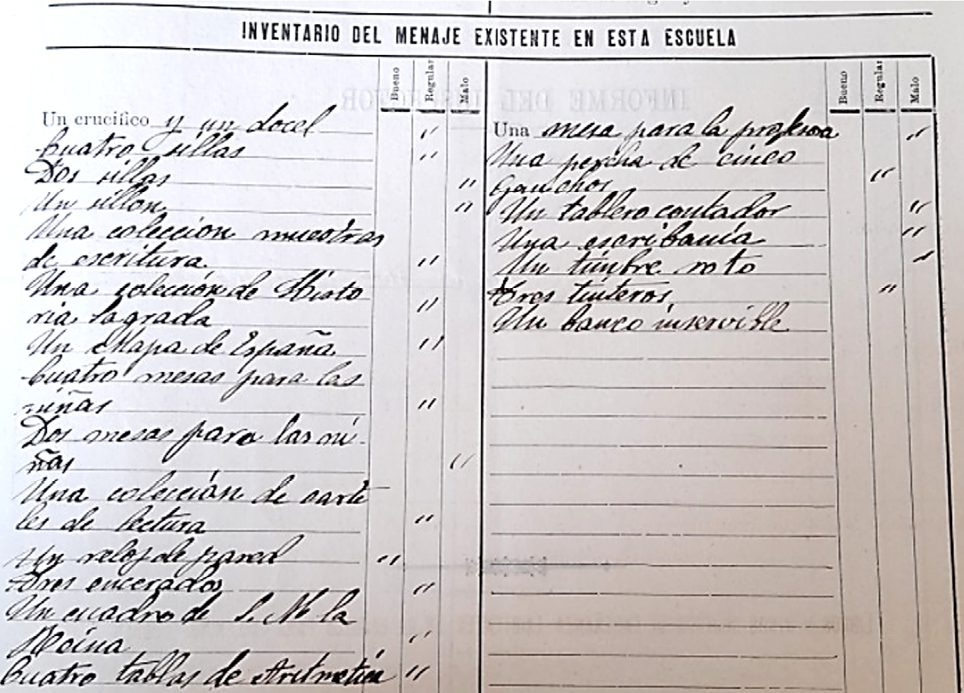 INVENTARIO DEL MENAJE EXISTENTE EN ESTA ESCUELA
Bueno Regular Malo
Un crucifico y un docel "
Cuatro sillas "
Dos sillas "
Un sillón "
Una colección muestras
de escritura "
Una colección de Histo
ria sagrada "
Un mapa de España "
Cuatro mesas para las
niñas "
Dos mesas para las ni-
ñas "
Una colección de carte
les de lectura "
Un reloj de pared "
Tres encerados "
Un cuadro de S. M. la
Reina "
Cuatro tablas de Aritmética "
Bueno Regular Malo
Una mesa para la profesora "
Una percha de cinco
ganchos "
Un tablero contador "
Una escribanía "
Un timbre roto "
Tres tinteros "
Un banco inservible